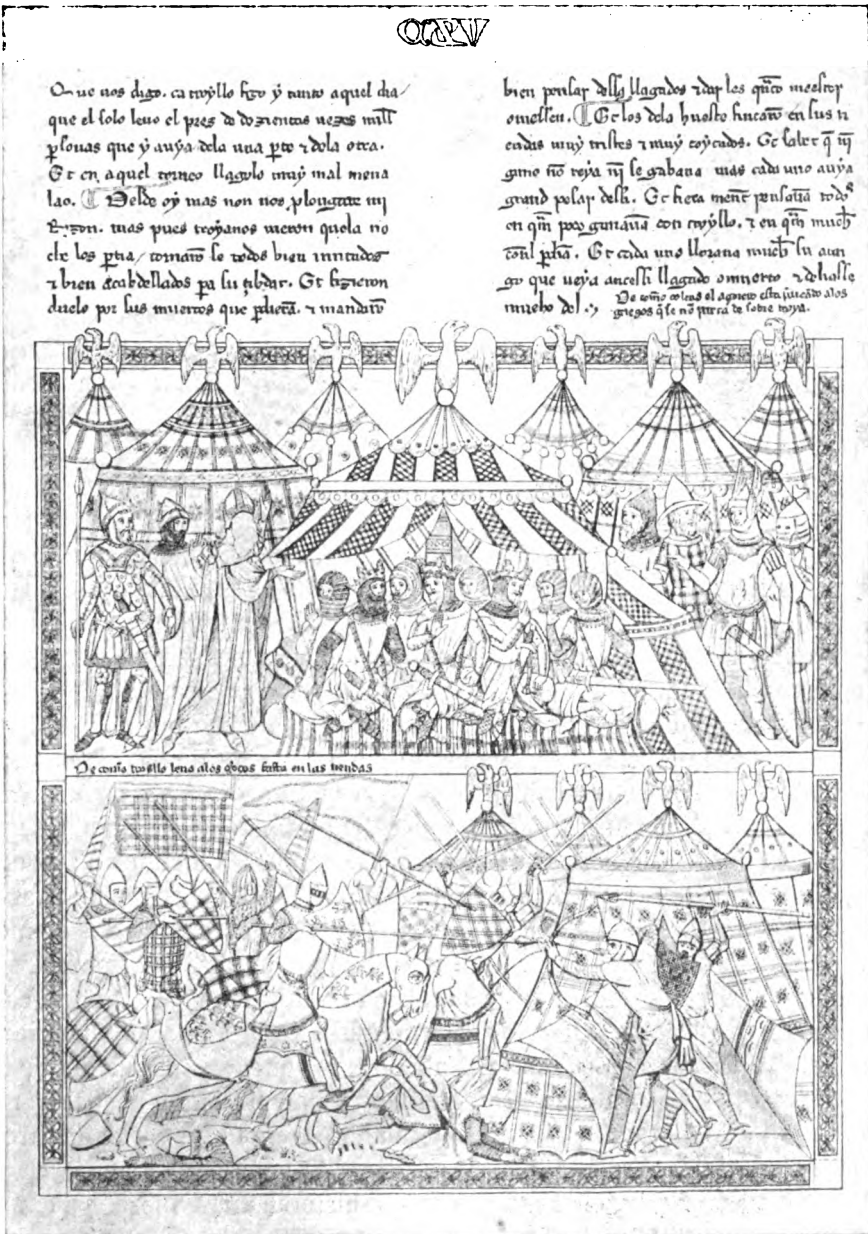 Que uos digo. ca troyllo fizo y tanto aquel dia
que el solo leuo el prez de dozientas uezes mill
psonas que y auya dela una pte & dela otra.
Et en aquel torneo llagolo muy mal mena
lao. Desde oy mas non nos plongare mi
Razon. mas pues troyanos uieron quela no
che los ptia / tornarō se todos bien
& bien acabdellados pa su çibdat. Et fizieron
duelo por sus muertos que pdierā. & mandarō
bien pensar dellos llagados & dar les quāto mester
ouiessen. Et los dela hueste fincarō en sus ti
endas muy tristes & muy coytados. Et sabet q̄ nī
guno nō reya nī se gabaua mas cada uno auya
grand pesar dessi. Et fiera ment pensauā todos
en qm̄ poco ganauā con troyllo. & en qm̄ much
conl pdiā. Et cada uno lloraua much su ami
go que ueya antessi llagado o muerto &
mucho del.
De como colcas el agorero esta
griegos q̄ se nō de sobre troya.
De como troyllo leuo alos griegos fasta en las tiendas